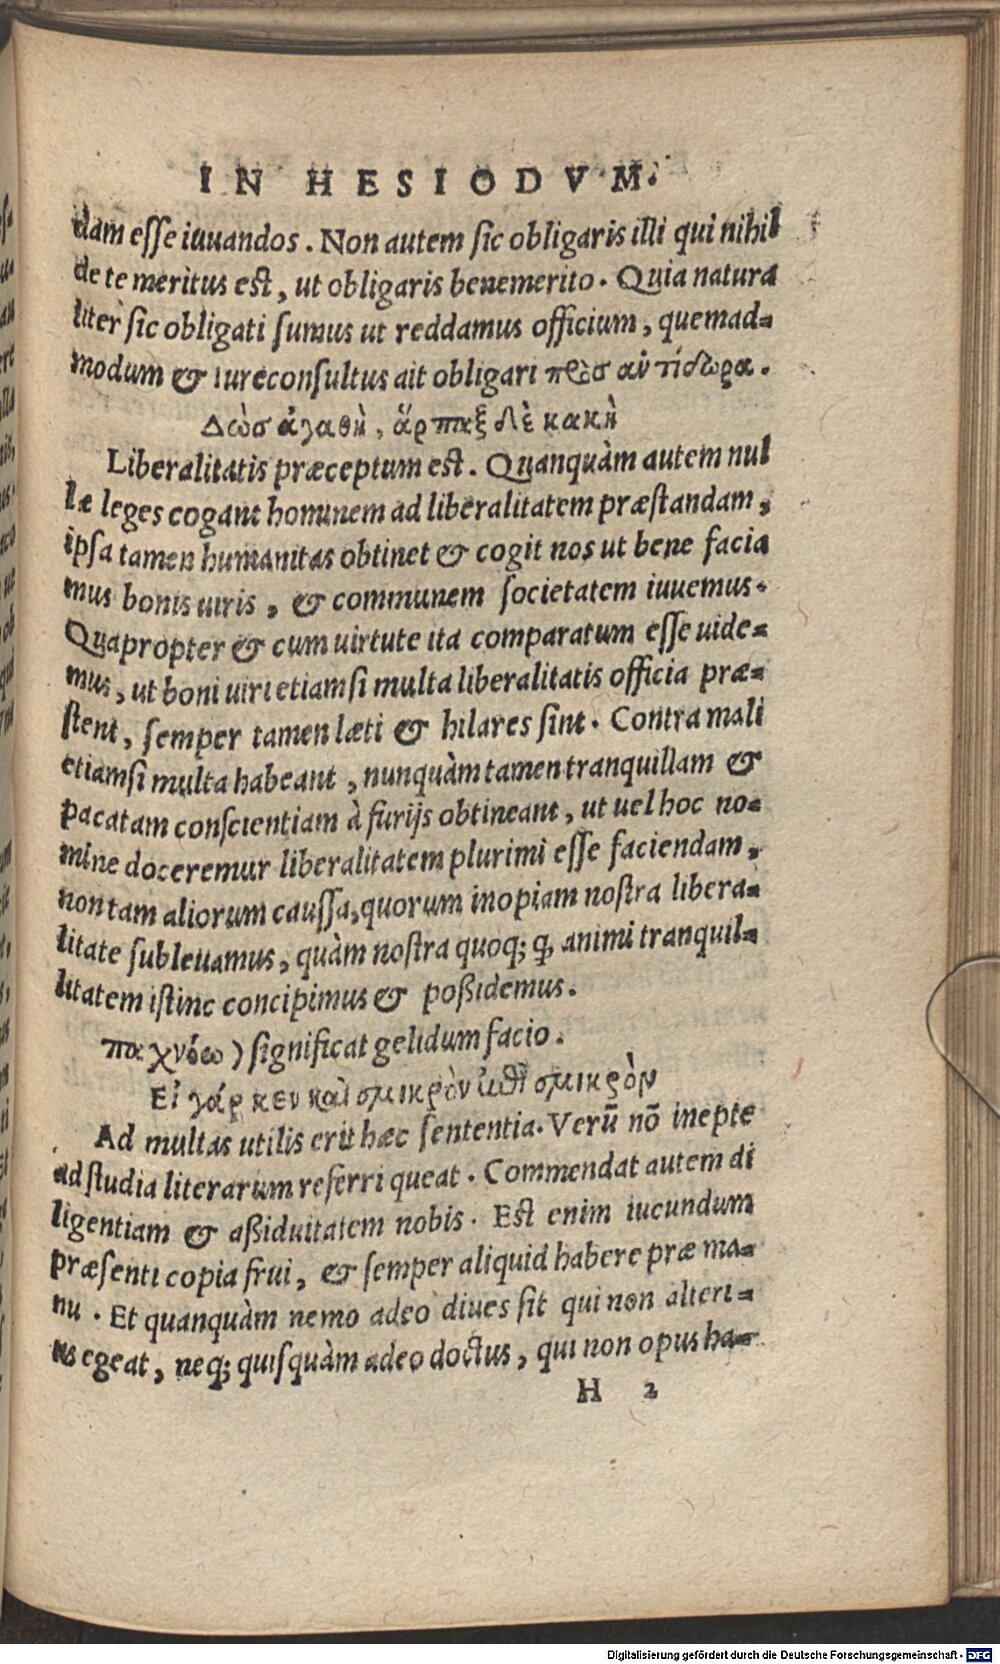 IN HESIODVM.
dam esse iuuandos. Non autem sic obligaris illi qui nihil
de te meritus est, ut obligaris benemerito. Quia natura
liter sic obligati sumus ut reddamus officium, quemad-
modum & iureconsultus ait obligari πρὸσ ἀντίδωρα.
Δὼσ ἀγαθὴ, ἅρπαξ δὲ κακὴ
Liberalitatis præceptum est. Quanquàm autem nul
læ leges cogant hominem ad liberalitatem præstandam,
ipsa tamen humanitas obtinet & cogit nos ut bene facia
mus bonis uiris, & communem societatem iuuemus.
Quapropter & cum uirtute ita comparatum esse uide-
mus, ut boni uiri etiamsi multa liberalitatis officia præ-
stent, semper tamen læti & hilares sint. Contra mali
etiamsi multa habeant, nunquàm tamen tranquillam &
pacatam conscientiam à furijs obtineant, ut uel hoc no-
mine doceremur liberalitatem plurimi esse faciendam,
non tam aliorum caussa, quorum inopiam nostra libera-
litate subleuamus, quàm nostra quoq; ꝙ animi tranquil-
litatem istinc concipimus & poßidemus.
παχνόω) significat gelidum facio.
Εἰ γάρ κεν καὶ σμικρὸν ἐπὶ σμικρὸν
Ad multas utilis erit hæc sententia. Verũ nõ inepte
ad studia literarum referri queat. Commendat autem di
ligentiam & aßiduitatem nobis. Est enim iucundum
præsenti copia frui, & semper aliquid habere præ ma-
nu. Et quanquàm nemo adeo diues sit qui non alteri-
us egeat, neq; quisquàm adeo doctus, qui non opus ha-
H 2
Digitalisierung gefördert durch die Deutsche Forschungsgemeinschaft - DFG